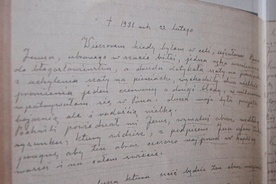 † 1931 rok 22 lutego
Wieczorem, kiedy byłam w celi, ujrzałam
Jezusa, ubranego w szacie białej, jedna ręka wzniesiona
do błogosławieństwa, a druga dotykała szaty na piersiach,
z uchylenia szaty na piersiach, wychodziły dwa wielkie
promienie jeden czerwony a drugi blady, w milczeniu
wpatrywałam się w Pana, dusza moja była przejęta
bojaźnią ale i radością wielką.
powiedział mi Jezus, wymaluj obraz według
rysunku, który widzisz, z podpisem: Jezu ufam
pragnę, aby ten obraz, czczono najpierw w kaplicy
waszej i na całym świecie.